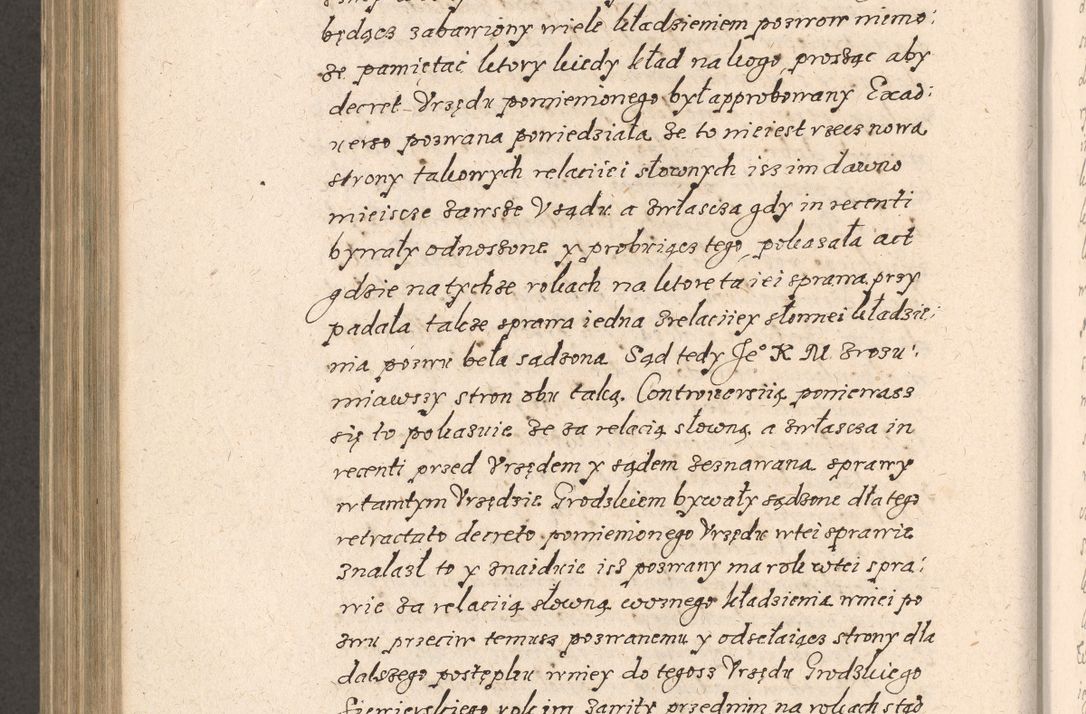 będącz zabawiony wiele kładzieniem pozwow niemo:
że pamiętać ktory kiedy kład na kogo, prosząc aby
decret Vrzędu pomienionego był approbowany Exad:
uerso pozwana powiedziała że to nieiest rzecz nowa
strony takowych relaciiei słownych isz im dawno
mieiscze zawsze V sądu a zwłascza gdy in recenti
bywały odnoszone y probuiącz tego, pokazała act
gdzie na tychże rokach na ktore ta iei sprawa przy
padała także sprawa iedna z relaciiey słownei kładzie:
nia pozwu beła sądzona Sąd tedy Je° K M zrozu:
miawszy stron obu taką Controuersiią poniewasz
się to pokazuie że za relacią słowną a zwłascza in
recenti przed Vrzędem y sądem zeznawana sprawy
w tamtym Vrzędzie Grodzkiem bywały sądzone dla tego
retractato decreto pomienionego Vrzędu w tei sprawie
znalazł to y znaiduie isz pozwany ma rok w tei spra:
wie za relaciią słowną woznego kładzienia w niei po
zwu przeciw temusz pozwanemu y odsełaiącz strony dla
dalszego postępku w niey do tegosz Vrzędu Grodzkiego
Siewierskiego rok im zawity przed nim na rokach stąd